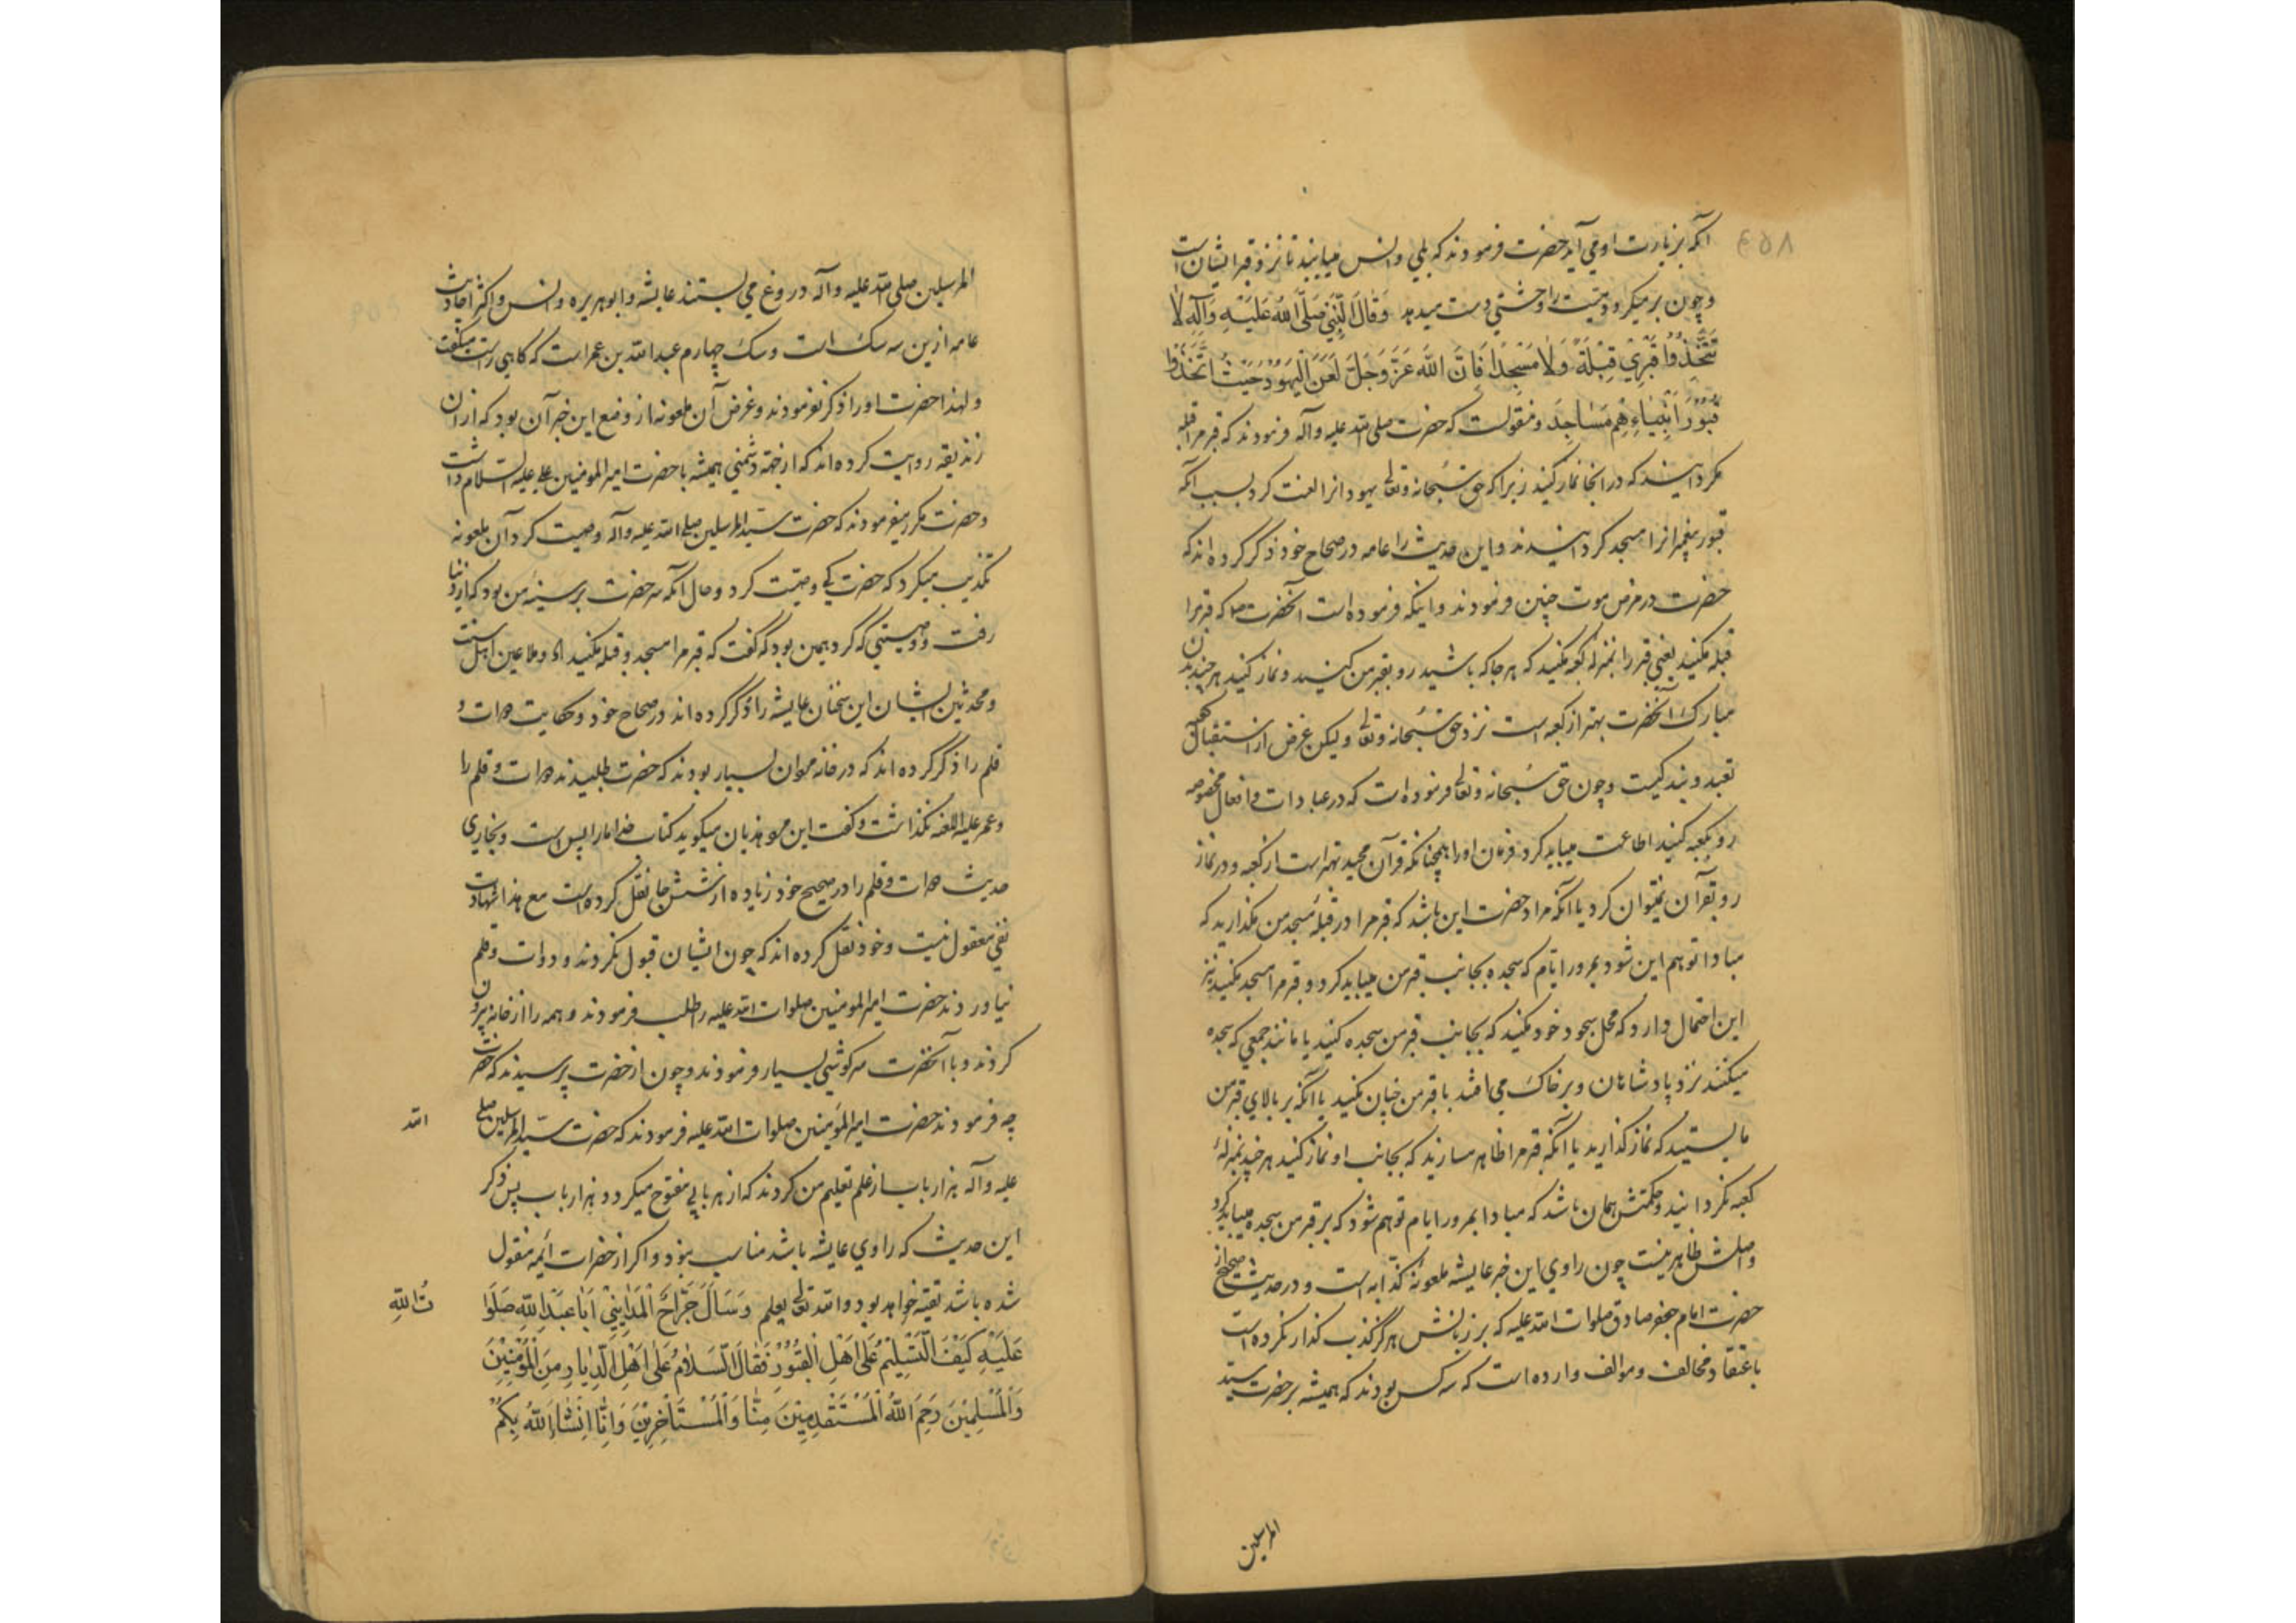 ۴۵۸
آنکه بزیارت او می آید حضرت فرمودند که بلی وانس میبابند تا نزد قبر ایشان است
وچون برمیکردد میت را وحشتی دست میدهد وَقَالَ النَّبِيُّ صَلَّى اللهُ عَلَيْهِ وَآلِهِ لَا
تَتَّخِذُوا قَبْرِي قِبْلَةً وَلَا مَسْجِدًا فَاِنَّ اللهَ عَزَّ وَجَلَّ لَعَنَ الْيَهُودَ حَيْثُ اتَّخَذُوا
قُبُورَ اَنْبِيَاءِهِمْ مَسَاجِدَ ومنقولست که حضرت صلی الله علیه وآله فرمودند که قبر مرا قبله
مکردانید که در انجا نماز کنید زیرا که حق سُبحانه وتعالی یهودانرا لعنت کرد بسبب آنکه
قبور پیغمبرانرا مسجد کردانیدند واین حدیث را عامه در صحاح خود ذکر کرده اند که
حضرت در مرض موت چنین فرمودند واینکه فرموده است آنحضرت ص که قبر مرا
قبله مکنید یعنی قبر را بمنزلهٔ کعبه مکنید که هر جا که باشید رو بقبر من کنید ونماز کنید هرچند بدن
مبارک آنحضرت بهتر از کعبه است نزد حق سُبحانه وتعالی ولیکن غرض از استقبال کعبه
تعبد وبندکیست وچون حق سُبحانه وتعالی فرموده است که در عبادات وافعال مخصوصه
رو بکعبه کنید اطاعت میباید کرد فرمان او را همچنانکه قرآن مجید بهتر است از کعبه ودر نماز
رو بقرآن نمیتوان کرد یا آنکه مراد حضرت این باشد که قبر مرا در قبلهٔ مسجد من مکذارید که
مبادا توهم این شود بمرور ایام که سجده بجانب قبر من میباید کرد وقبر مرا مسجد مکنید نیز
این احتمال دارد که محل سجود خود مکنید که بجانب قبر من سجده کنید یا مانند جمعی که سجده
میکنند نزد پادشاهان وبر خاک می افتند با قبر من چنان مکنید یا آنکه بر بالای قبر من
مایستید که نماز کذارید یا آنکه قبر مرا ظاهر مسازید که بجانب او نماز کنید هر چند بمنزلهٔ
کعبه نکردانید وحکمتش همان باشد که مبادا بمرور ایام توهم شود که بر قبر من سجده میباید کرد
واصلش ظاهر نیست چون راوی این خبر عایشه ملعونهٔ کذابه است ودر حدیث صحیح از
حضرت امام جعفر صادق صلوات الله علیه که بر زبانش هرکز کذب کذار نکرده است
باعتقاد مخالف وموالف وارد است که سه کس بودند که همیشه بر حضرت سید
المرسلین
المرسلین صلی الله علیه وآله دروغ می بستند عایشه وابوهریره وانس واکثر احادیث
عامه ازین سه سک است وسک چهارم عبدالله بن عمر است که کاهی راست میکفت
ولهذا حضرت او را ذکر نفرمودند وغرض آن ملعونه از وضع این خبر آن بود که از آن
زندیقه روایت کرده اند که از جهة دشمنی همیشه با حضرت امیرالمومنین علی علیه السلام داشت
وحضرت مکرر میفرمودند که حضرت سیدالمرسلین صلی الله علیه وآله وصیت کرد آن ملعونه
تکذیب میکرد که حضرت کی وصیت کرد وحال آنکه سر حضرت بر سینهٔ من بود که از دنیا
رفت ووصیتی که کرد همین بود که گفت که قبر مرا مسجد وقبله مکنید اه وملاعین اهل سنت
ومحدثین ایشان این سخنان عایشه را ذکر کرده اند در صحاح خود وحکایت دوات و
قلم را ذکر کرده اند که در خانه مردان بسیار بودند که حضرت طلبیدند دوات وقلم را
وعمر علیه اللعنه نکذاشت وکفت این مرد هذیان میکوید کتاب خدا ما را بس است وبخاری
حدیث دوات وقلم را در صحیح خود زیاده از شش جا نقل کرده است مع هذا شهادت
نفی معقول نیست وخود نقل کرده اند که چون ایشان قبول نکردند ودوات وقلم
نیاوردند حضرت امیرالمومنین صلوات الله علیه را طلب فرمودند وهمه را از خانه بیرون
کردند وبا آنحضرت سرکوشی بسیار فرمودند وچون از حضرت پرسیدند که حضرت
چه فرمودند حضرت امیرالمؤمنین صلوات الله علیه فرمودند که حضرت سیدالمرسلین صلی
الله
علیه وآله هزار باب از علم تعلیم من کردند که از هر بابی مفتوح میکردد هزار باب پس ذکر
این حدیث که راوی عایشه باشد مناسب نبود واکر از حضرات ایمه منقول
شده باشد تقیه خواهد بود والله تعالی یعلم وَسَاَلَ جَرَّاحُ الْمَدَايِنِيْ اَبَا عَبْدِ اللهِ صَلَوَا
تُ اللهِ
عَلَيْهِ كَيْفَ التَّسْلِيْمُ عَلَى اَهْلِ الْقُبُوْرِ فَقَالَ السَّلَامُ عَلَى اَهْلِ الدِّيَارِ مِنَ الْمُؤْمِنِيْنَ
وَالْمُسْلِمِيْنَ رَحِمَ اللهُ الْمُسْتَقْدِمِيْنَ مِنَّا وَالْمُسْتَاْخِرِيْنَ وَاِنَّا اِنْشَاءَ اللهُ بِكُمْ